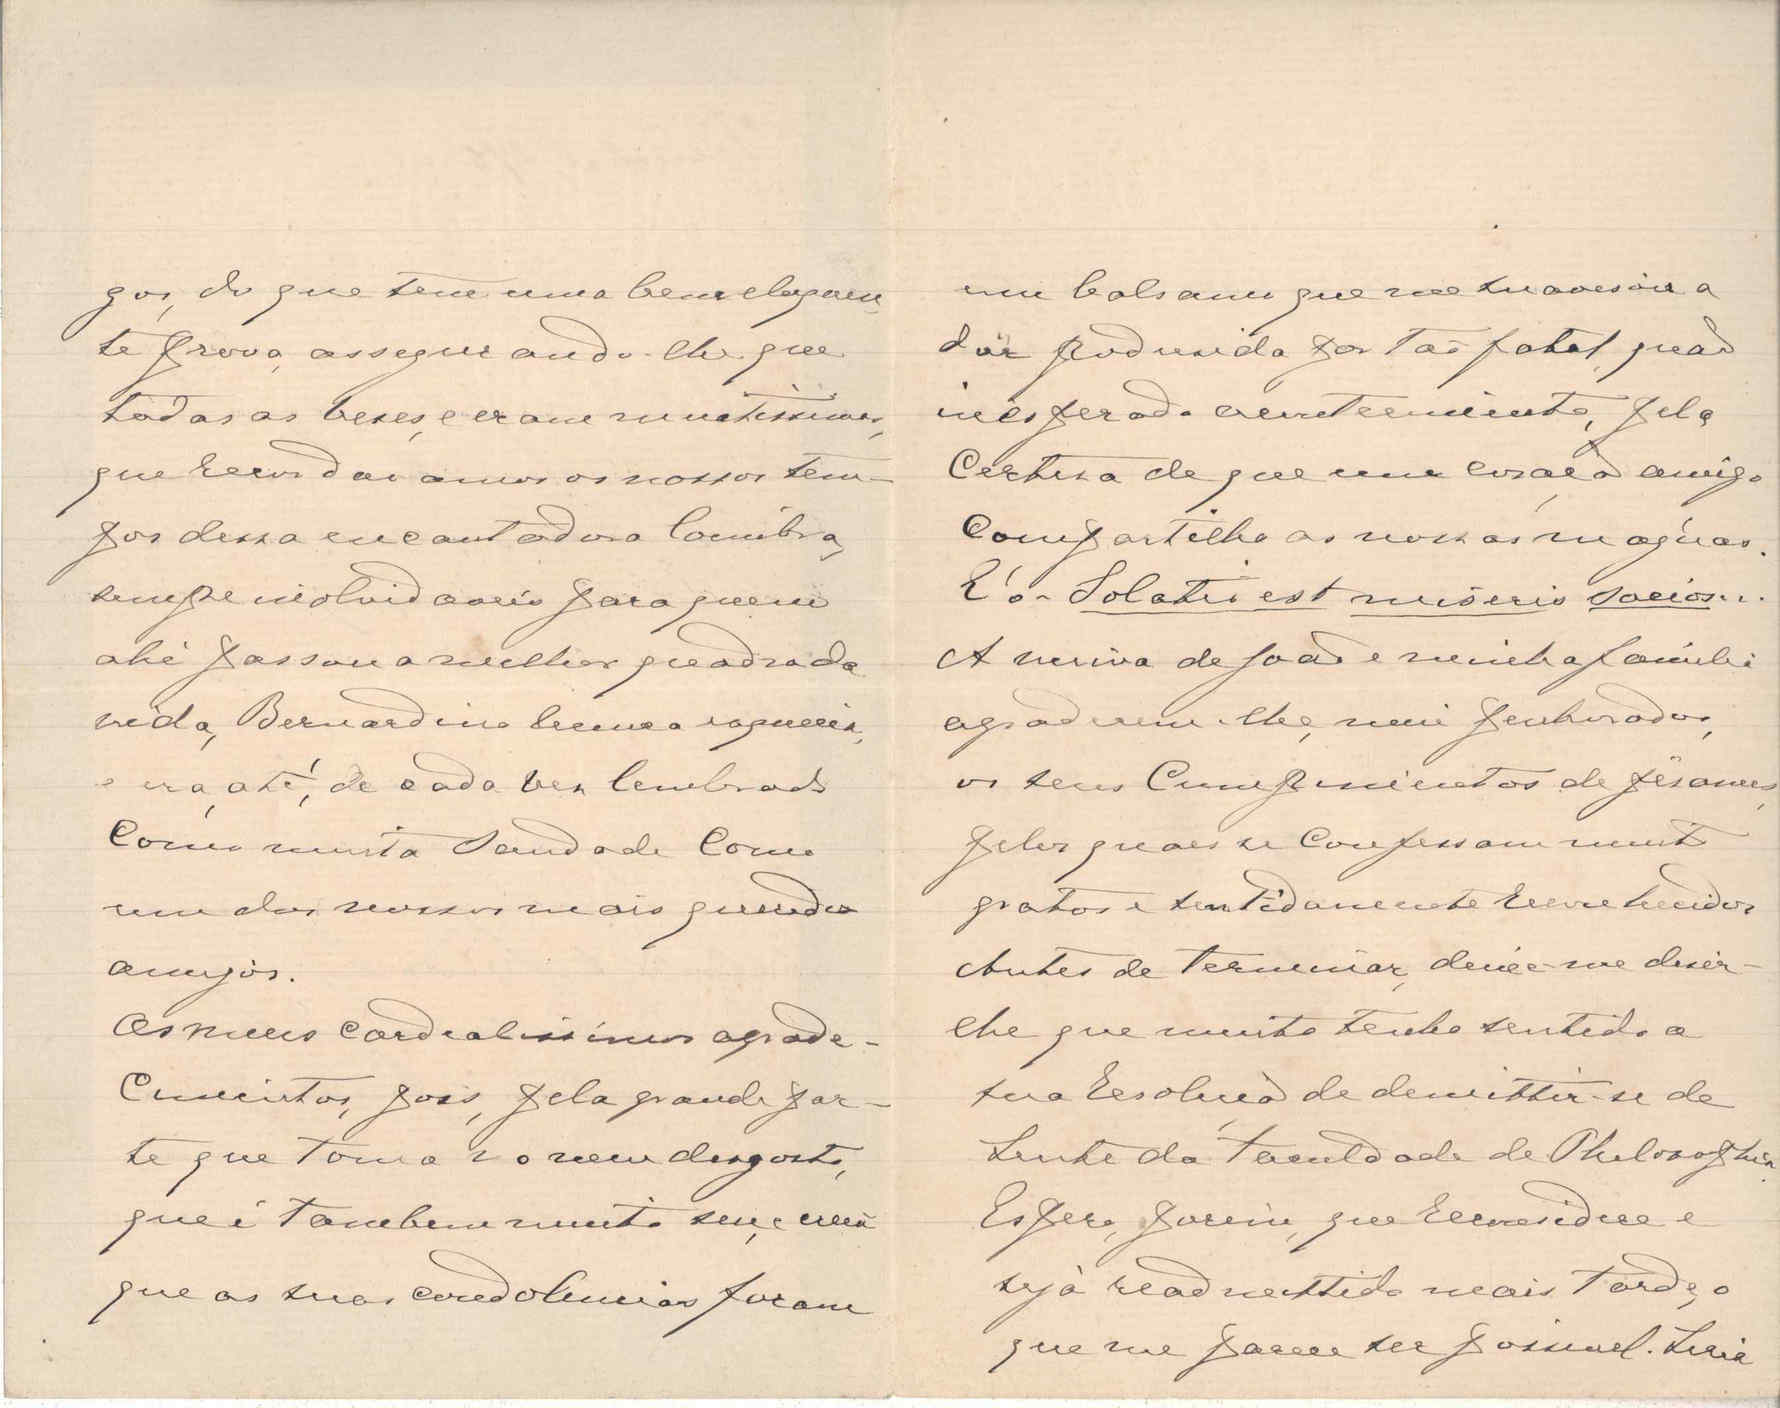 gos, do que tem uma bem eloquen-
te prova, assegurando-lhe que
todas as vezes, e eram muitissimas,
que recordavamos os nossos tem-
pos dessa encantadora Coimbra,
sempre inolvidaveis para quem
ahi passou a melhor quadra da
vida, Bernardino nunca esquecia,
e era, até, de cada vez lembrado
com muita saudade como
um dos nossos mais queridos
amigos.
Os meus cordealissimos agrade-
cimentos, pois, pela grande par-
te que toma no meu desgosto,
que é tambem muito seu, e creia
que as suas condolencias foram
um balsamo que me suavisou a
dôr produsida por tão fatal, quão
inesperado acontecimento, pela
certesa de que um coração amigo
compartilha as nossas máguas.
É o- Solatio est miseris socios...
A viuva de João e minha familia
agradecem-lhe, mui penhorados,
os seus cumprimentos de pêsames,
pelos quaes se confessam muito
gratos e sentidamente reconhecidos
Antes de terminar, deixe-me diser-
lhe que muito tenho sentido a
sua resolução de demittir-se de
Lente da Faculdade de Philosophia.
Espero, porem, que reconsidere e
sejà readmettido mais tarde, o
que me parece ser possivel. Seria